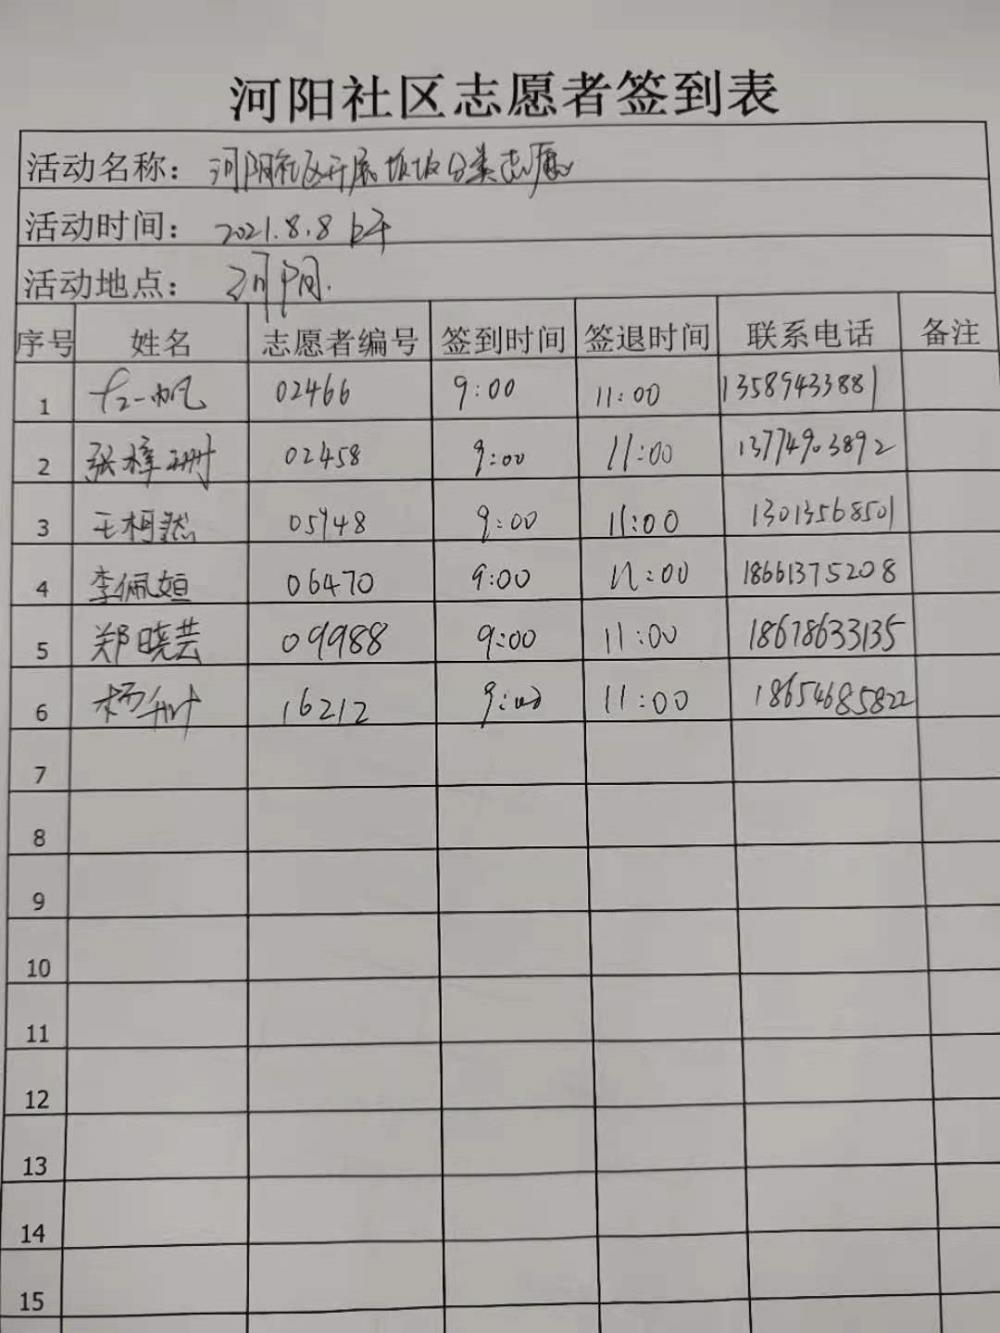 河阳社区志愿者签到表
活动名称： 河阳社区开展垃圾分类志愿
活动时间： 2021.8.8 上午
活动地点： 河阳.
序号 姓名 志愿者编号 签到时间 签退时间 联系电话 备注
1 一帆 02466 9:00 11:00 13589433881
2 张梓珊 02458 9:00 11:00 13774903892
3 王柯然 05948 9:00 11:00 13013568501
4 李佩姮 06470 9:00 11:00 18661375208
5 郑晓芸 09988 9:00 11:00 18678633135
6 杨 16212 9:00 11:00 18654685822
7
8
9
10
11
12
13
14
15